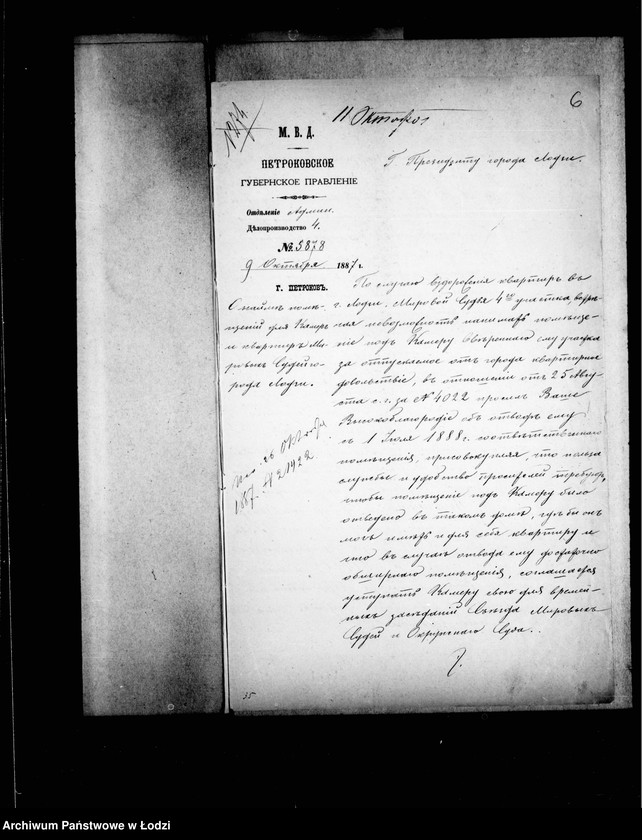 6
11 Октября
1274
М. В. Д.
ПЕТРОКОВСКОЕ
ГУБЕРНСКОЕ ПРАВЛЕНІЕ
Отдѣленіе Админ.
Дѣлопроизводство 4.
№ 5878
9 Октября 1887 г.
Г. ПЕТРОКОВЪ.
О наймѣ помѣ-
щеній для Камеръ
и квартиръ Ми-
ровыхъ Судей го-
рода Лодзи.
Г Президенту города Лодзи.
По случаю вздорожанія квартиръ въ
г. Лодзи, Мировой Судья 4го участка
за невозможность нанимать помѣще-
ніе подъ Камеру ввѣреннаго ему участка
за отпускаемое отъ города квартирное
довольствіе, въ отношеніи отъ 25 Авгу-
ста с. г. за № 4022 просилъ Ваше
Высокоблагородіе объ отводѣ ему
съ 1 Іюля 1888 г. соотвѣтственнаго
помѣщенія, присовокупляя, что польза
службы и удобство просителей требуютъ,
чтобы помѣщеніе подъ Камеру было
отведено въ такомъ домѣ, гдѣ бы онъ
могъ имѣть и для себя квартиру и
что въ случаѣ отвода ему достаточно
обширнаго помѣщенія, соглашается
уступать Камеру свою для времен-
ныхъ засѣданій Съѣзда Мировыхъ
Судей и Окружнаго Суда.
Октября
188 № 21922
35
Archiwum Państwowe w Łodzi